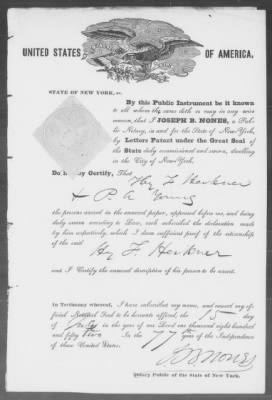 UNITED STATES OF AMERICA.
STATE OF NEW YORK, ss.
By this Public Instrument be it known
to all whom the same doth or may in any wise
concern, that I JOSEPH B. NONES, a Pub-
lic Notary, in and for the State of New York,
by Letters Patent under the Great Seal of
the State duly commissioned and sworn, dwelling
in the City of New York.
Do hereby Certify, That
Hy F
& P. A Young
the persons named in the annexed paper, appeared before me, and being
duly sworn according to Law, each subscribed the declaration made
by him respectively, which I deem sufficient proof of the citizenship
of the said
Hy F.
and I Certify the annexed description of his person to be correct.
In Testimony whereof, I have subscribed my name, and caused my of-
ficial Notarial Seal to be hereunto affixed, the 15 day
of July in the year of our Lord one thousand eight hundred
and fifty two In the 77th year of the Independence
of these United States.
J B NONES
Notary Public of the State of New York.